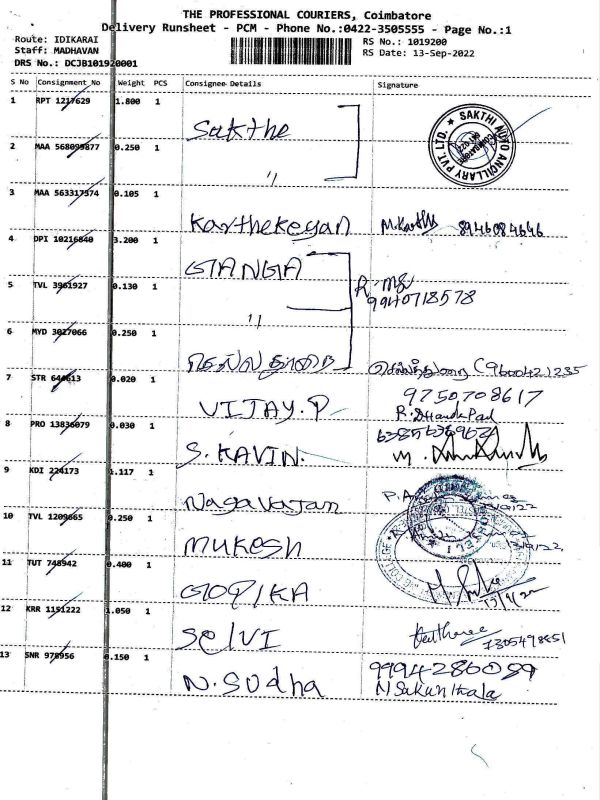 THE PROFESSIONAL COURIERS, Coimbatore
Delivery Runsheet - PCM - Phone No.:0422-3505555 - Page No.:1
Route: IDIKARAI
RS No.: 1019200
Staff: MADHAVAN
RS Date: 13-Sep-2022
DRS No.: DCJB101920001
S No Consignment No Weight PCS Consignee Details Signature
1 RPT 1217629 1.800 1 Sakthe
SAKTHI AUTO ANCILLARY PVT. LTD.
2 MAA 568099877 0.250 1 "
3 MAA 563317374 0.105 1 Karthekeyan M.Karthi 8946084646
4 DPI 10216840 3.200 1 GANGA
5 TVL 3961927 0.130 1 "
9940718578
6 MYD 3027066 0.250 1
(9600421235
7 STR 644613 0.020 1 VIJAY.P
9750708617
8 PRO 13836079 0.030 1 S.KAVIN.
9 KDI 224173 1.117 1 Nagavajan
10 TVL 1209665 0.250 1 Mukesh
11 TUT 748942 0.400 1 GOPIKA
12 KRR 1151222 1.050 1 SelVI
13 SNR 978956 0.150 1 N.Sudha
9994286089
N Sakunthala